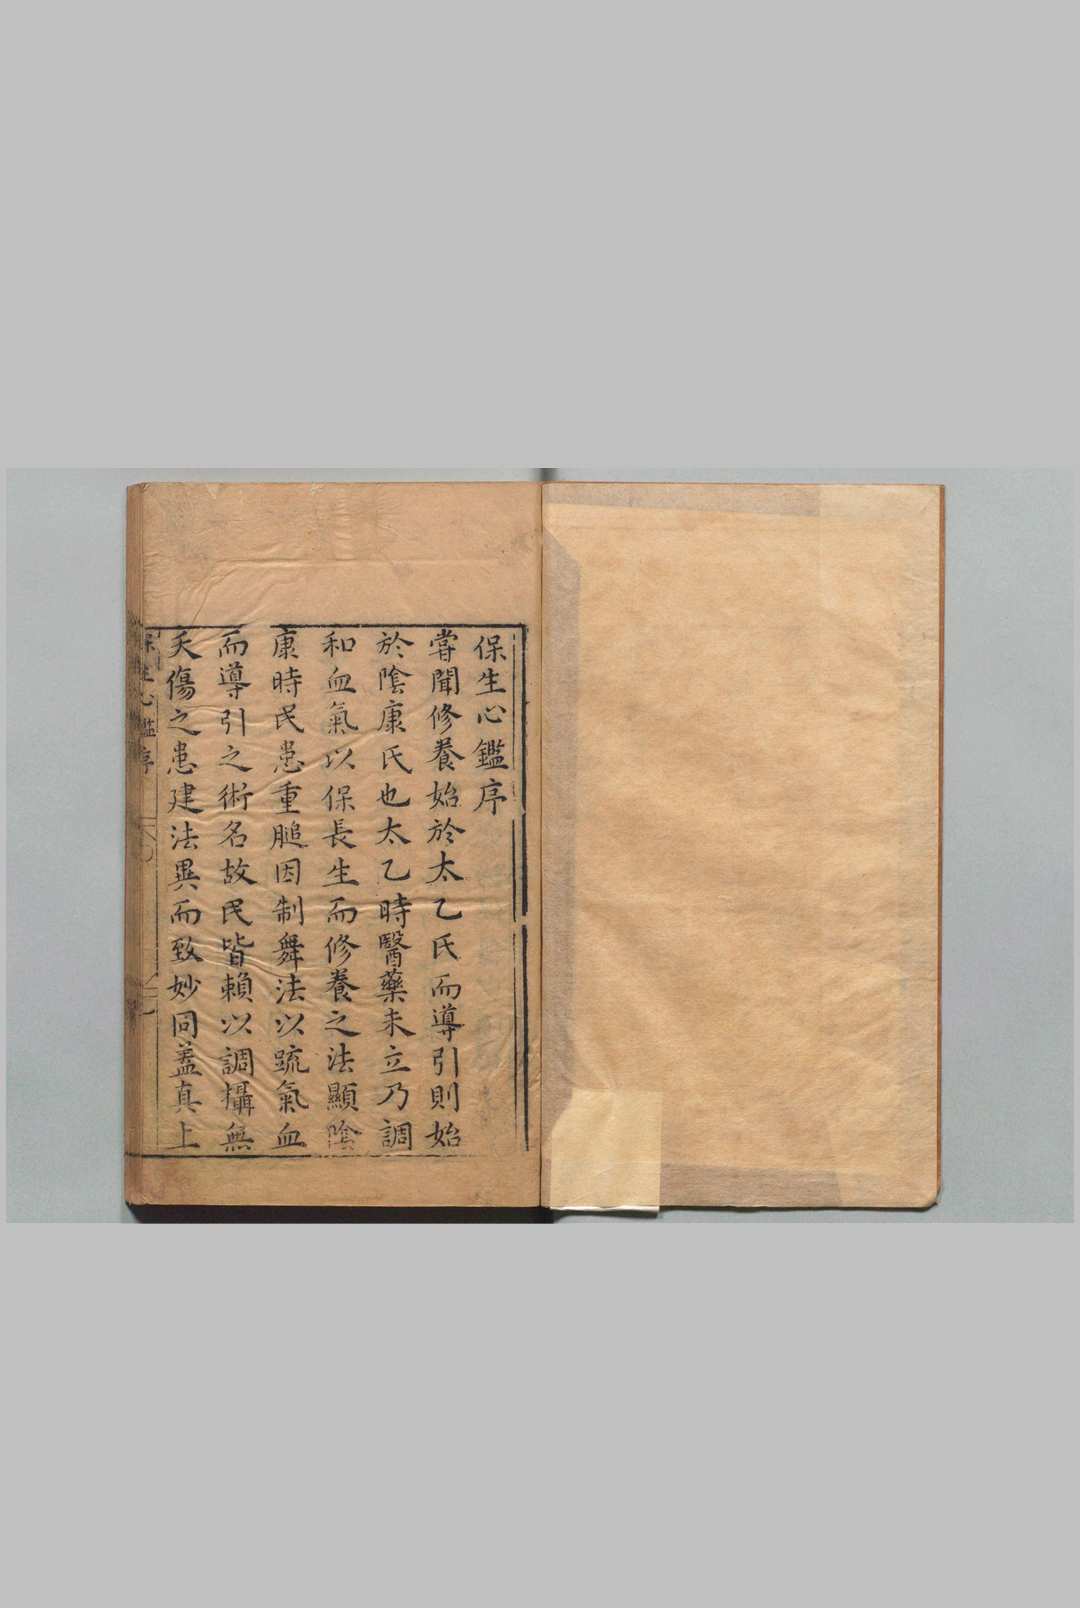 保生心鑑序
嘗聞修養始於太乙氏而導引則始
於陰康氏也太乙時醫藥未立乃調
和血氣以保長生而修養之法顯陰
康時民患重膇因制舞法以疏氣血
而導引之術名故民皆賴以調攝無
夭傷之患建法異而致妙同蓋真上
保生心鑑序